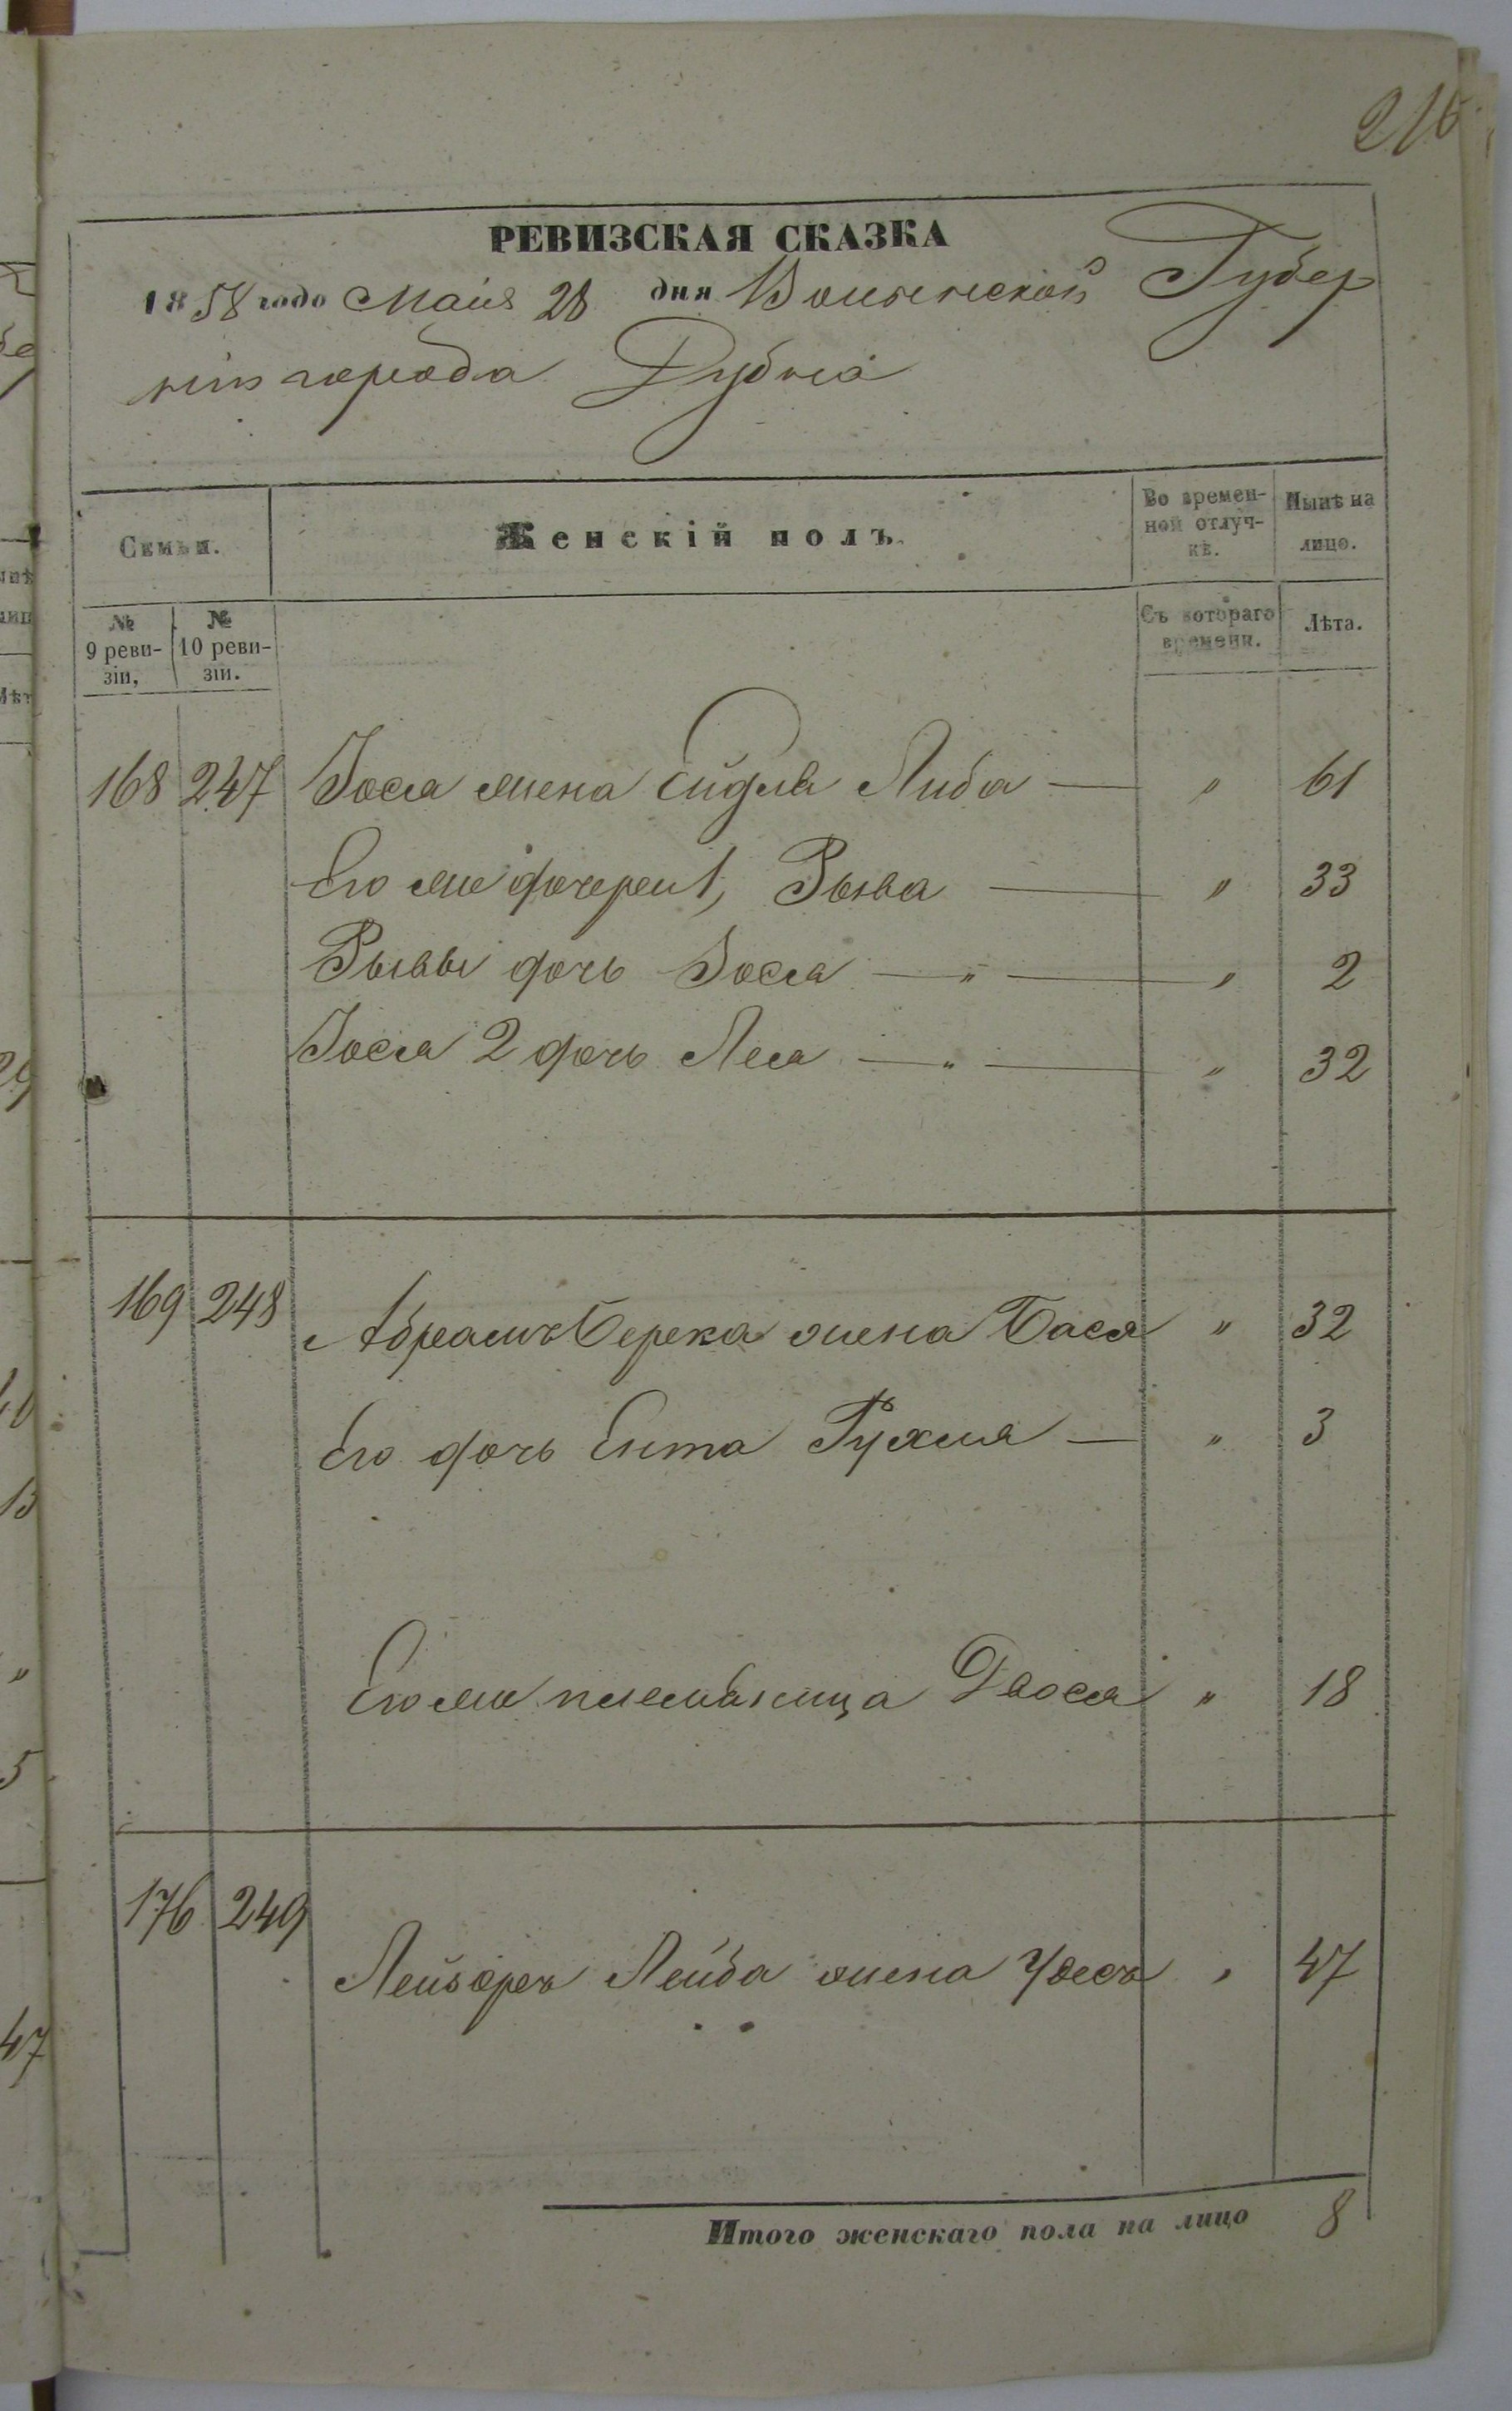 216
РЕВИЗСКАЯ СКАЗКА
1858 года Маія 28 дня Волынской Губер
ніи города Дубна
Семьи.
Женскій полъ.
Во времен-
ной отлуч-
кѣ.
Нынѣ на
лицо.
№
9 реви-
зіи,
№
10 реви-
зіи.
Съ котораго
времени.
Лѣта.
168 247 Іося жена Ейдля Либа — " 61
Его же дочереи 1, Рыва — " 33
Рывы дочь Іося — " — " 2
Іося 2 дочь Лея — " — " 32
169 248 Абрамъ Берека жена Бася " 32
Его дочь Ента Рухля — " 3
Его же племяница Двося " 18
176 249
Лейзоръ Лейба жена Удесъ " 47
Итого женскаго пола на лицо 8